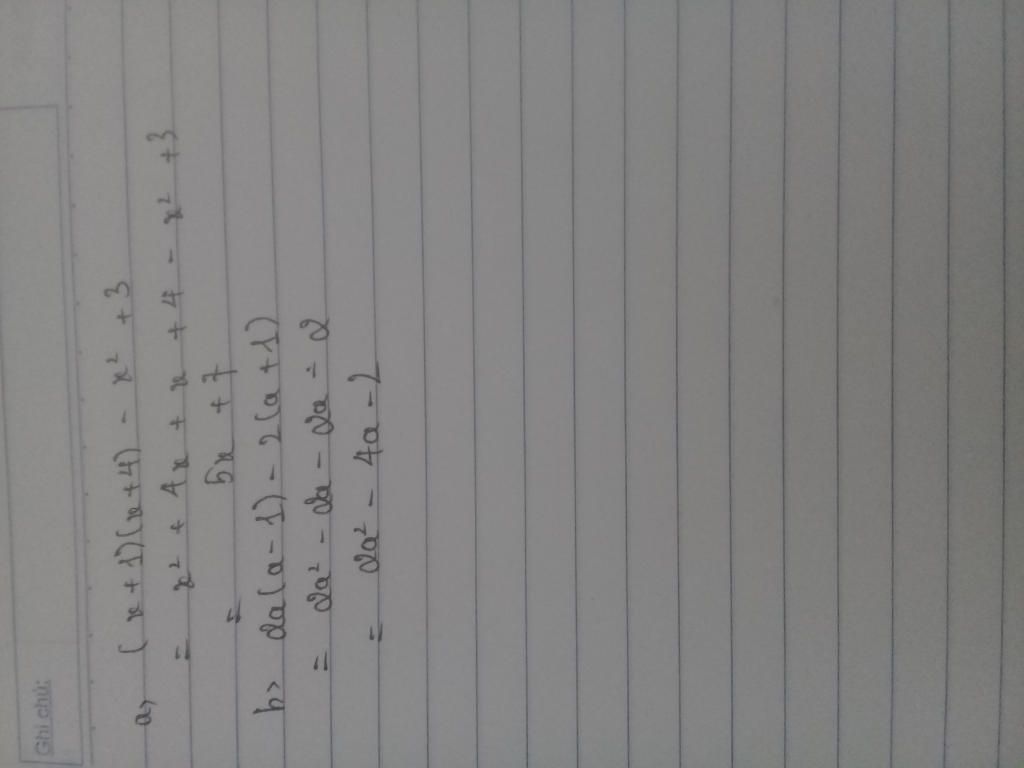 Ghi chú:
a, (x+1)(x+4) - x² + 3
= x² + 4x + x + 4 - x² + 3
= 5x + 7
b> 2a(a-1) - 2(a+1)
= 2a² - 2a - 2a - 2
= 2a² - 4a - 2